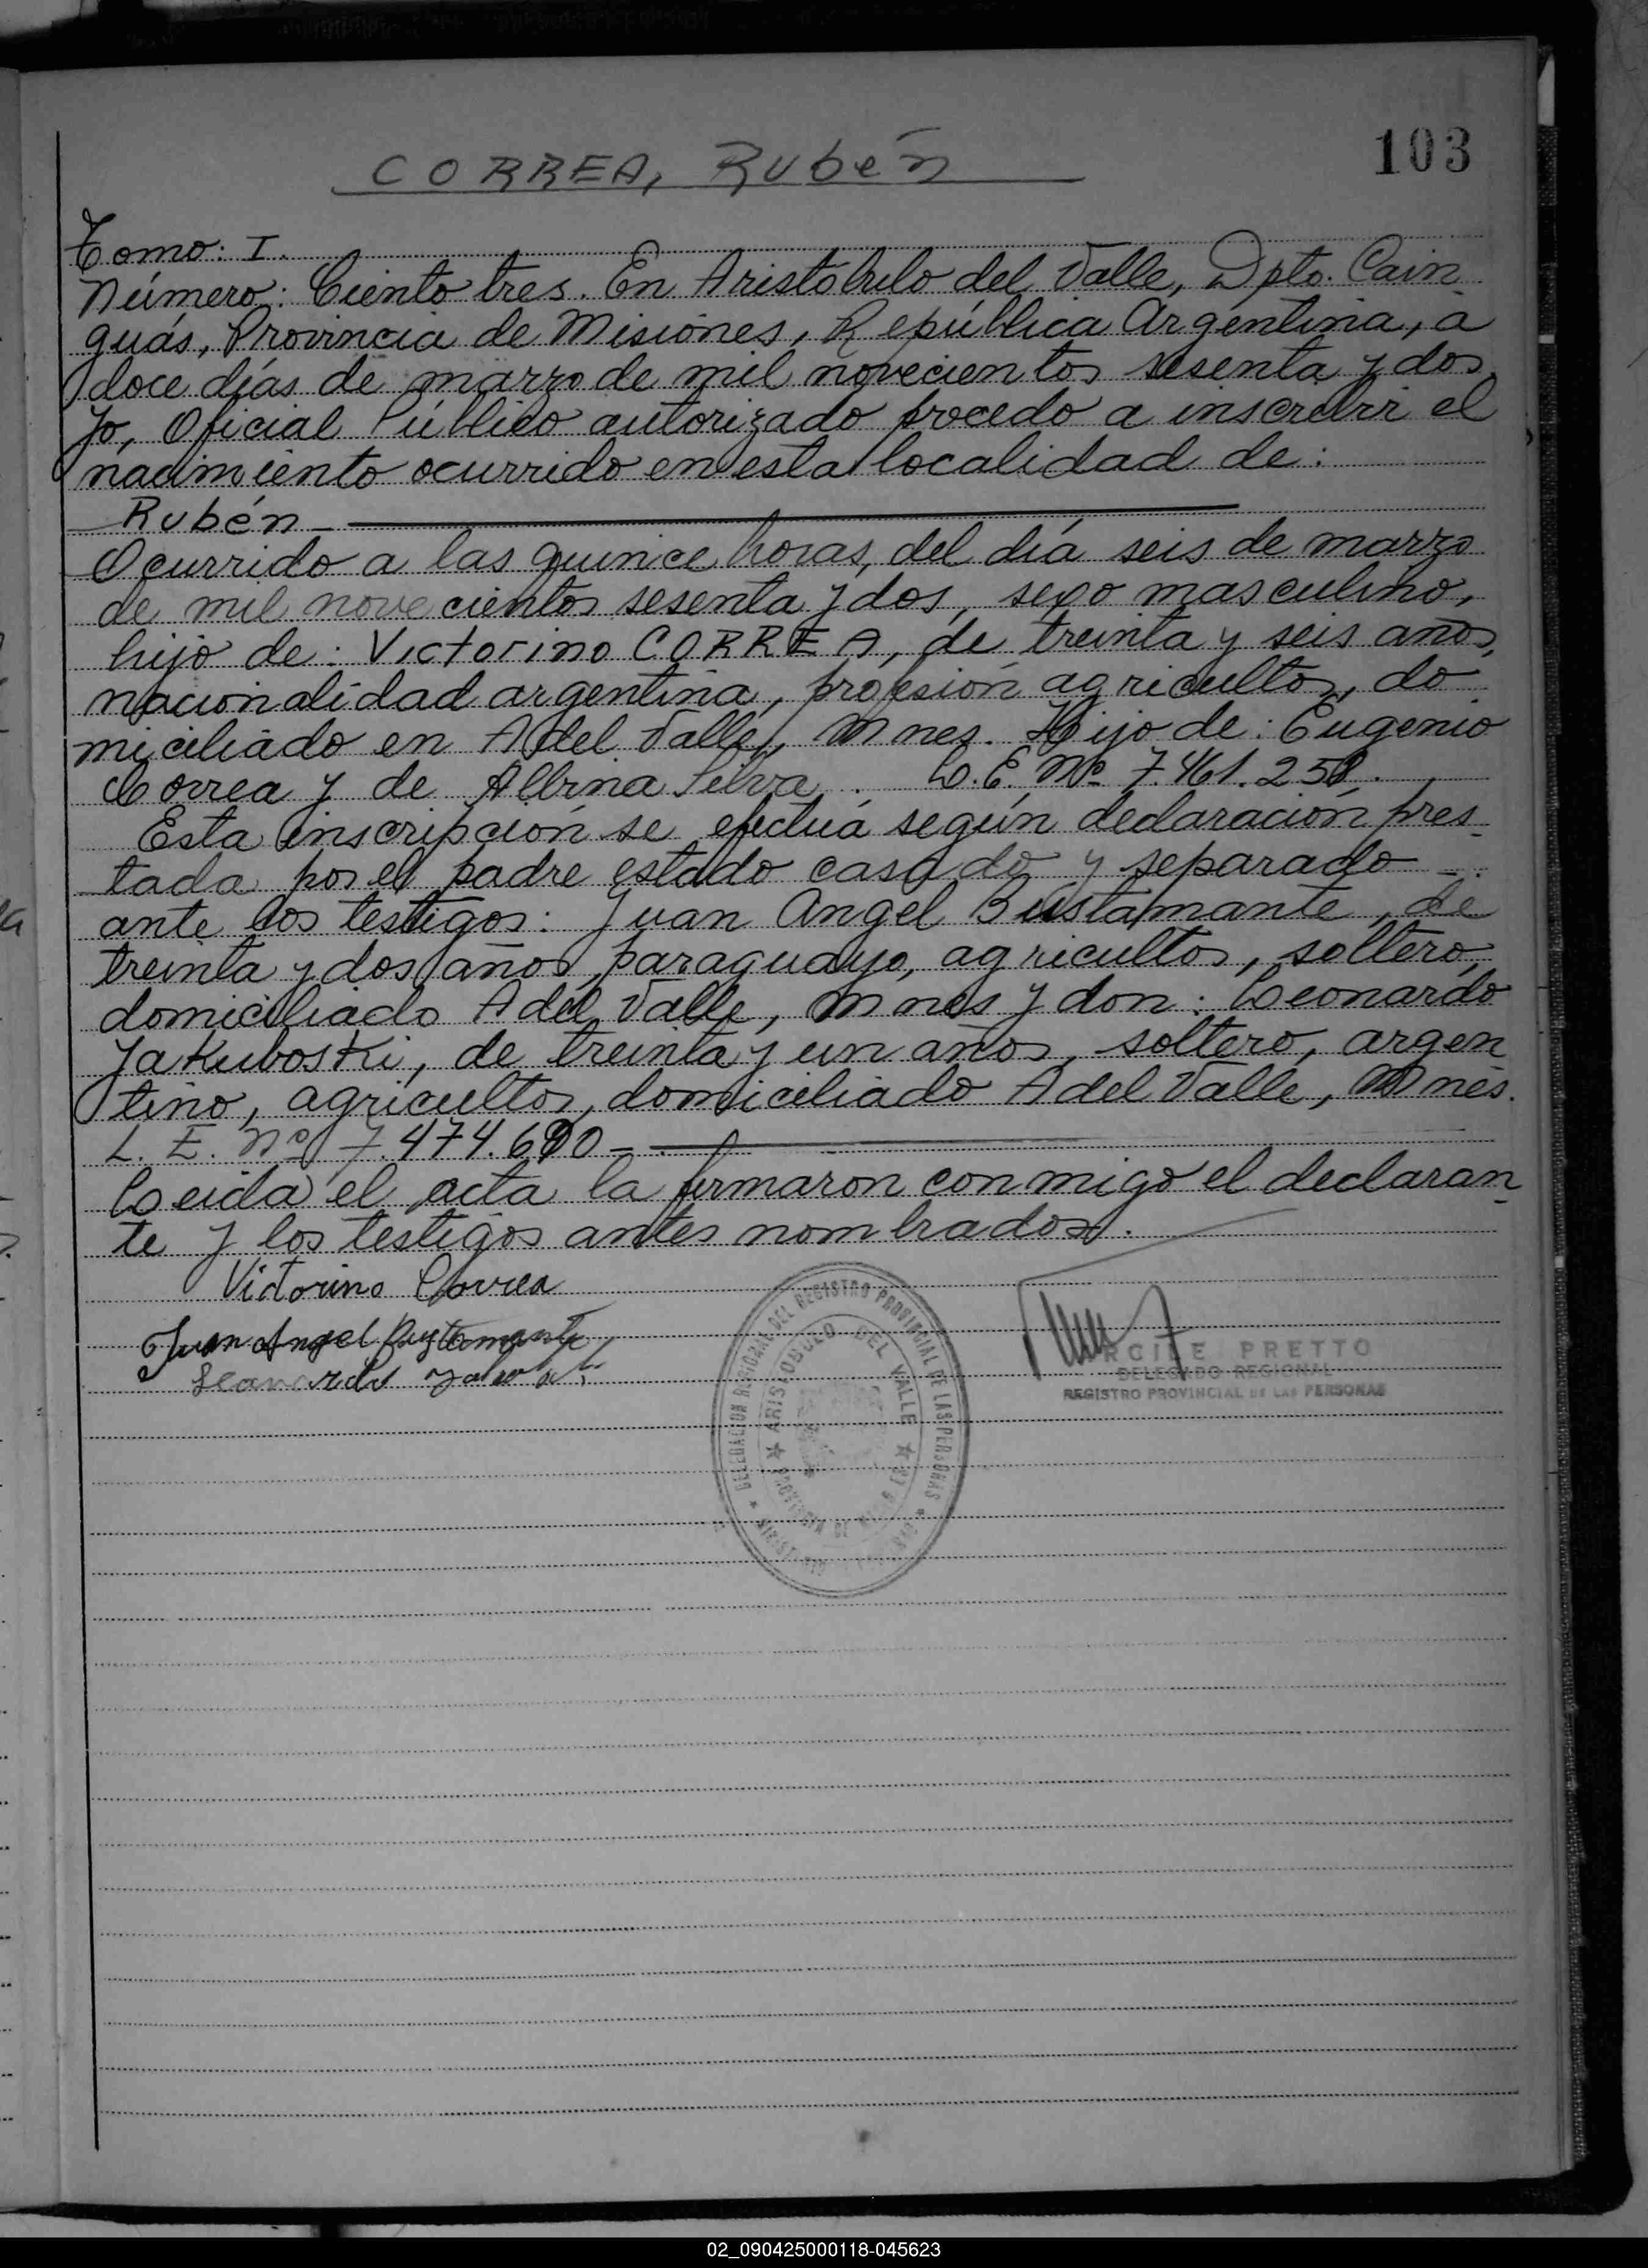 103
CORREA, Rubén
Tomo: I.
Número: Ciento tres. En Aristóbulo del Valle, Dpto. Cain
guás, Provincia de Misiones, República Argentina, a
doce días de marzo de mil novecientos sesenta y dos
Yo, Oficial Público autorizado procedo a inscribir el
nacimiento ocurrido en esta localidad de:
Rubén
Ocurrido a las quince horas, del día seis de marzo
de mil novecientos sesenta y dos, sexo masculino,
hijo de: Victorino CORREA, de treinta y seis años,
nacionalidad argentina, profesión agricultor, do
miciliado en A del Valle, Mnes. Hijo de: Eugenio
Correa y de Albina Silva. L.E. Nº 7.461.258.
Esta inscripción se efectúa según declaración pres-
tada por el padre estado casado y separado -.
ante los testigos: Juan Angel Bustamante, de
treinta y dos años, paraguayo, agricultor, soltero,
domiciliado A del Valle, Mnes y don: Leonardo
Yakuboski, de treinta y un años, soltero, argen
tino, agricultor, domiciliado A del Valle, Mnes.
L. E. Nº 7.474.690-
Leida el acta la firmaron conmigo el declaran-
te y los testigos antes nombrados.
Victorino Correa
Juan Angel Bustamante
Leonardo
DELEGACION REGIONAL DEL REGISTRO PROVINCIAL DE LAS PERSONAS
ARISTOBULO DEL VALLE
PROVINCIA DE
RCILE PRETTO
DELEGADO REGIONAL
REGISTRO PROVINCIAL DE LAS PERSONAS
02_090425000118-045623